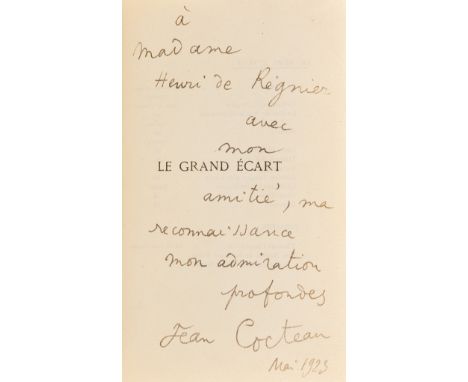 à
Madame
Henri de Régnier
avec
mon
LE GRAND ÉCART
amitié, ma
reconnaissance
mon admiration
profondes
Jean Cocteau
Mai 1923